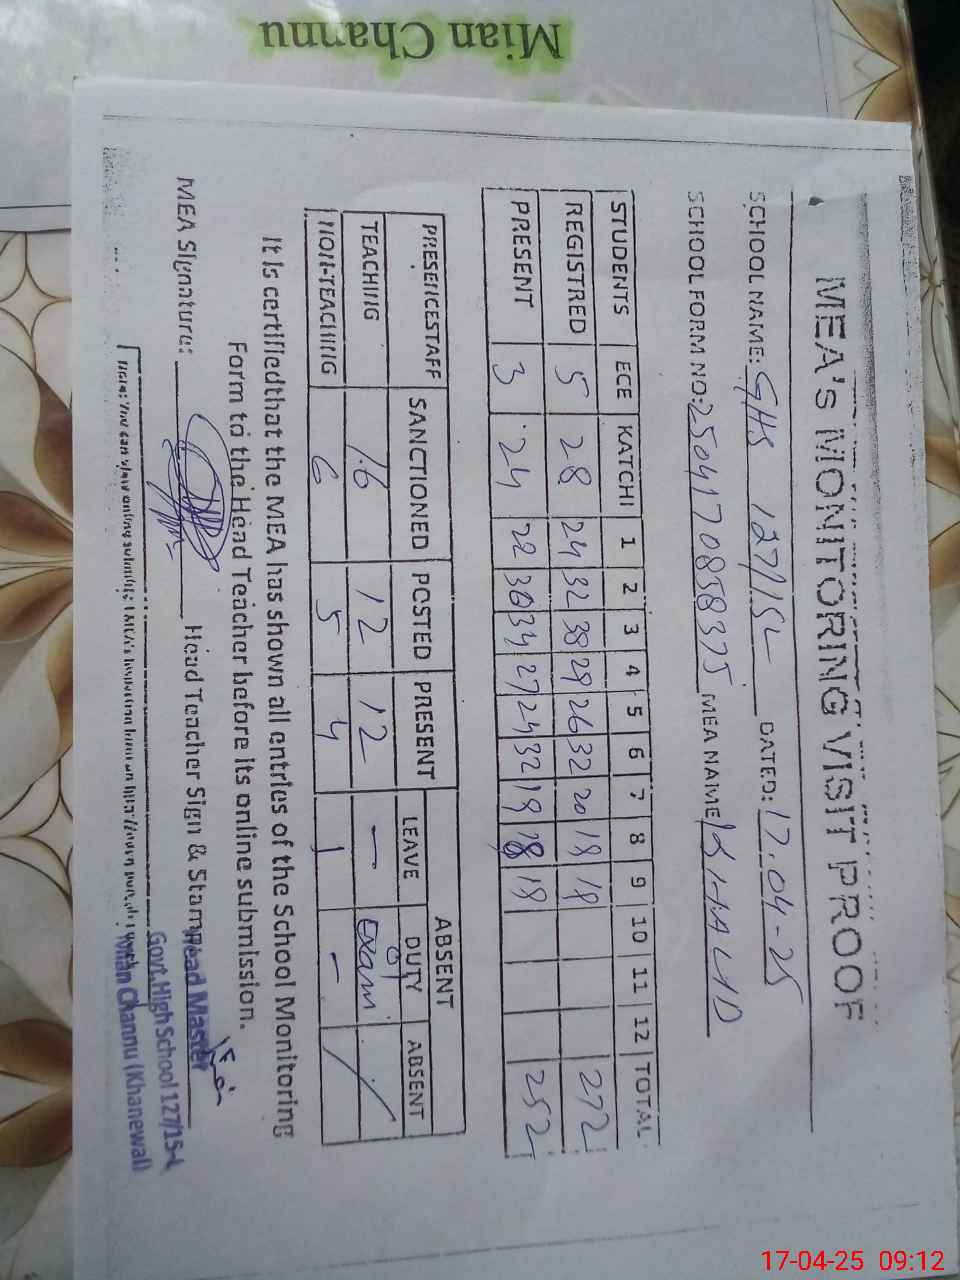 Mian Channu
MEA's MONITORING VISIT PROOF
SCHOOL NAME: GHS 127/15L DATED: 17.04-25
SCHOOL FORM NO: 2504170858375 MEA NAME KHALID
STUDENTS ECE KATCHI 1 2 3 4 5 6 7 8 9 10 11 12 TOTAL
REGISTRED 5 28 24 32 38 29 26 32 20 19 18 272
PRESENT 3 24 22 30 34 27 24 32 19 18 18 252
PRESENCESTAFF SANCTIONED POSTED PRESENT ABSENT
LEAVE DUTY ABSENT
TEACHING 16 12 12 — Exam
NON-TEACHING 6 5 4 1 —
It is certifiedthat the MEA has shown all entries of the School Monitoring
Form to the Head Teacher before its online submission.
MEA Signature: Head Teacher Sign & Stamp
Head Master
Govt. High School 127/15-L
Mian Channu (Khanewal)
17-04-25 09:12